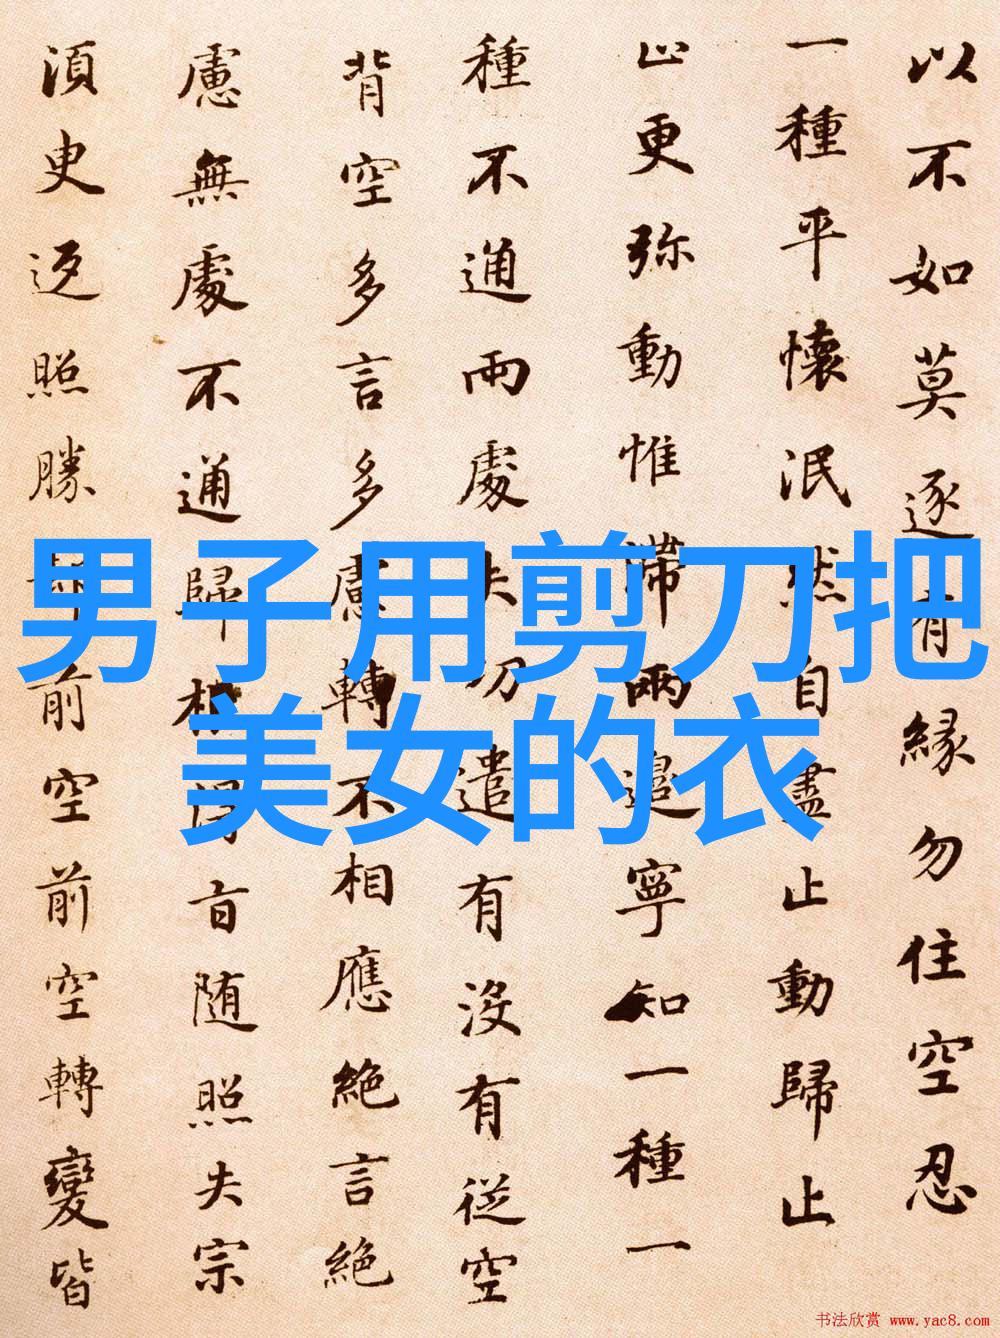 以不如莫逐有緣勿住空忍
一種平懷泯然自盡止動歸止
止更弥動惟滯兩邊寧知一種一
種不通兩處失功遣有沒有従空
背空多言多慮轉不相應絶言絶
慮無處不通歸根得旨随照失宗
須臾返照勝却前空前空轉變皆
男子用剪刀把
美女的衣
书法欣赏 www.yac8.com